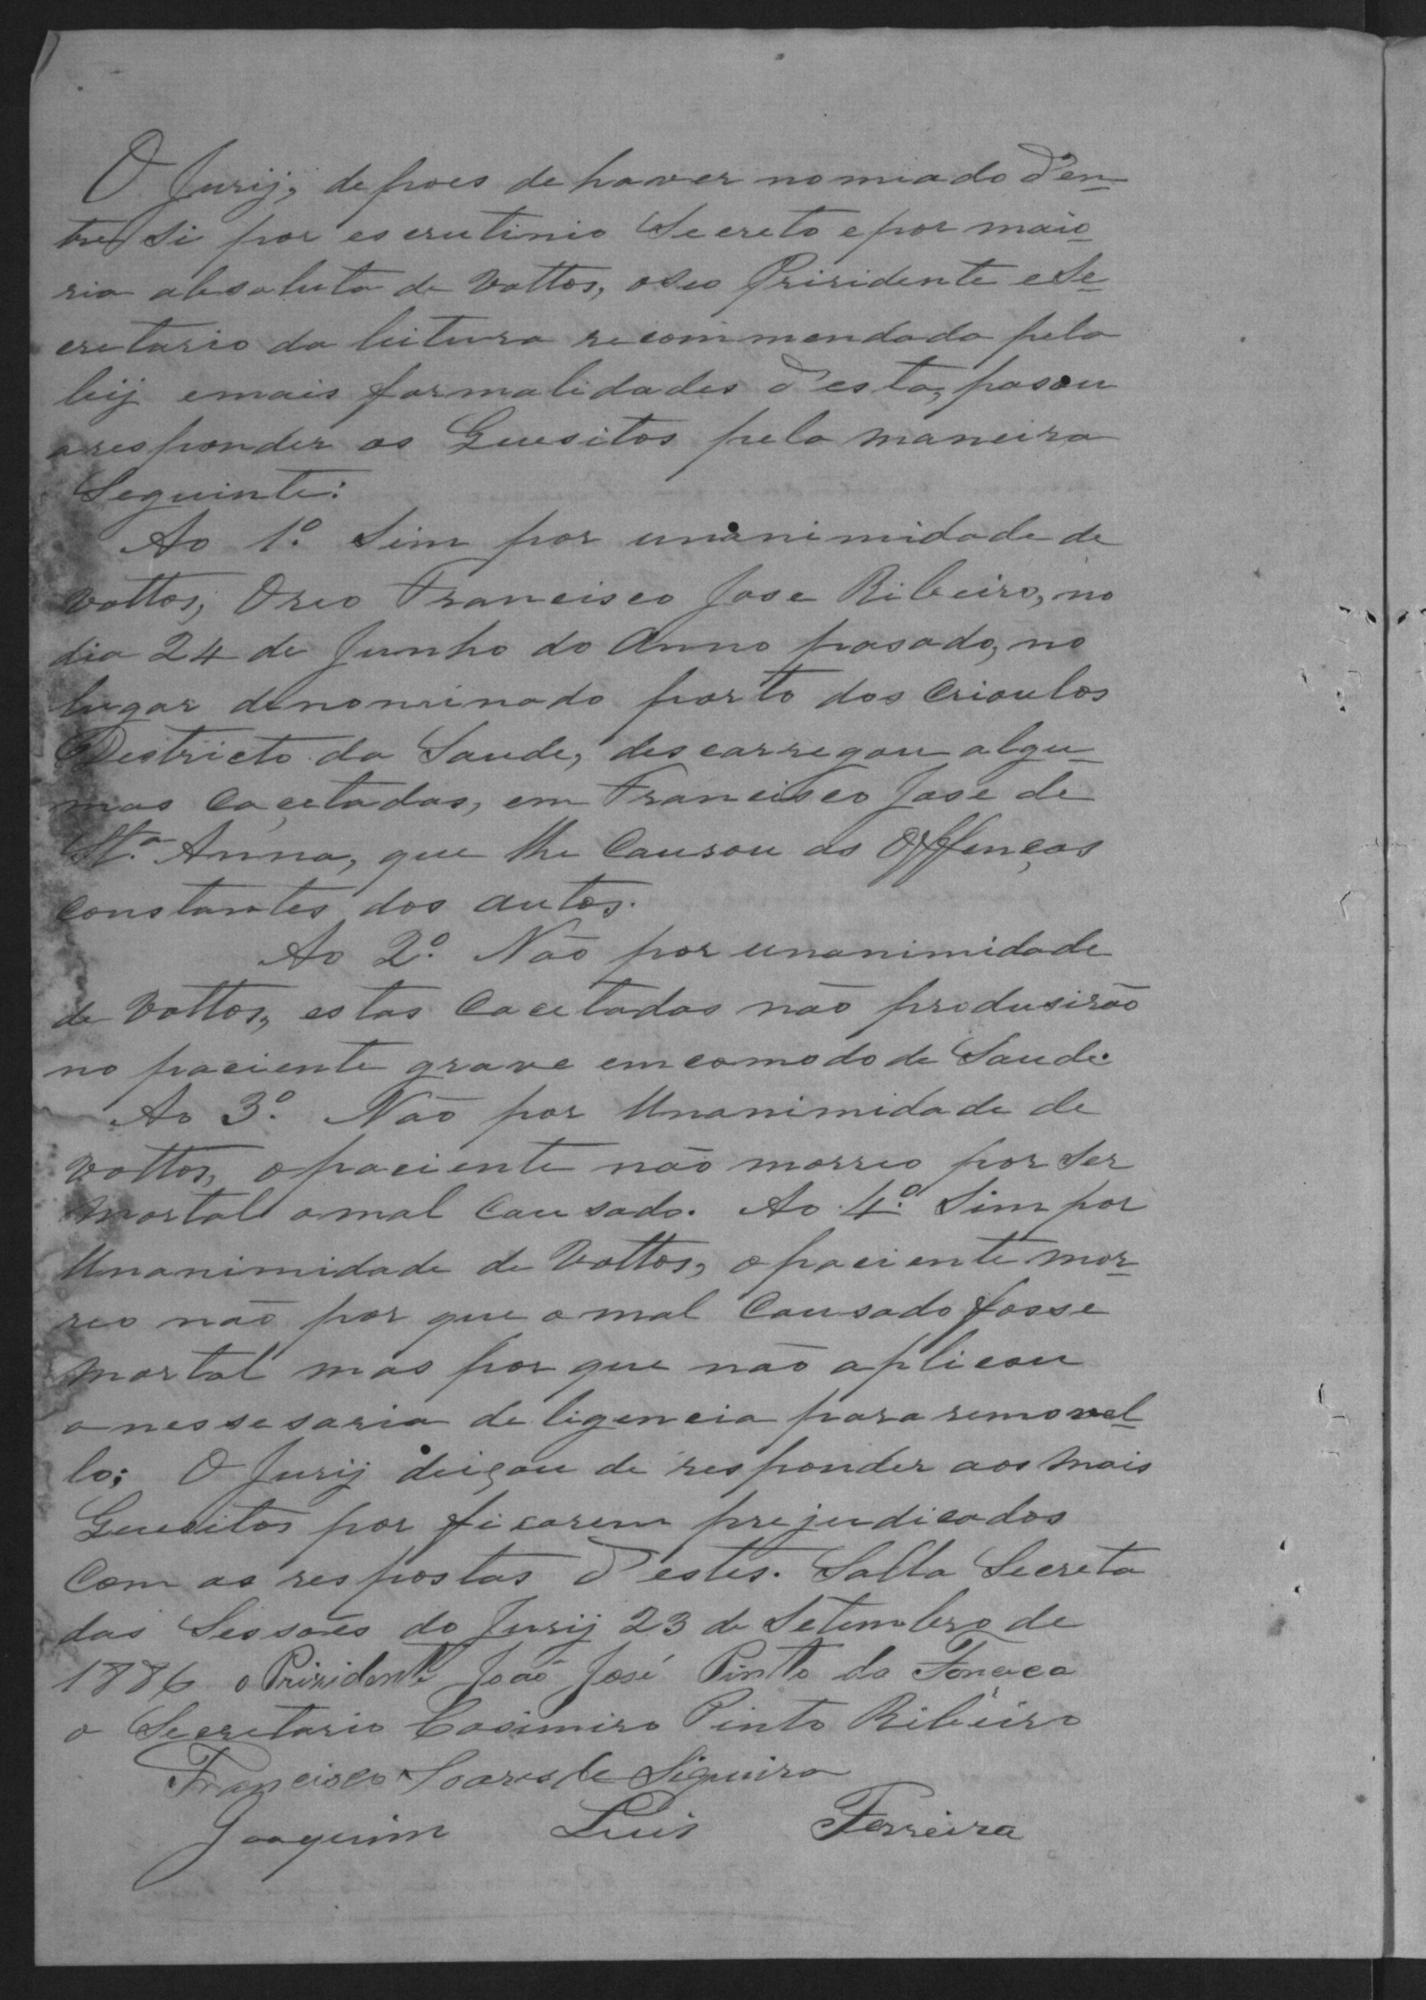 O Jurij, depoes de haver nomiado d'en-
tre si por escrutinio Secreto e por maio-
ria absoluta de vottos, o seo Prisidente e Se-
cretario da leitura recommendada pela
leij e mais formalidades d'esta, pasou
a responder os Quesitos pela maneira
Seguinte:
Ao 1º. Sim por unanimidade de
vottos, O reo Francisco Jose Ribeiro, no
dia 24 de Junho do Anno pasado, no
lugar denominado porto dos Crioulos
Destricto da Saude, descarregou algu-
mas cacetadas, em Francisco Jose de
Stª. Anna, que lhe Causou as Offenças
Constantes dos autos.
Ao 2º. Não por unanimidade
de vottos, estas Cacetadas não produsirão
no paciente grave emcomodo de Saude.
Ao 3º. Não por Unanimidade de
vottos, o paciente não morreo por Ser
Mortal o mal Causado. Ao 4º. Sim por
Unanimidade de Vottos, o paciente mor-
reo não por que o mal Causado fosse
mortal mas por que não aplicou
a nessesaria deligencia para removel-
lo; O Jurij deiçou de responder aos mais
Quesitos por ficarem prejudicados
Com as respostas d'estes. Salla Secreta
das Sessões do Jurij 23 de Setembro de
1886 o Prisidente João José Pinto da Fonceca
o Secretario Casimiro Pinto Ribeiro
Francisco Soares de Siqueira
Joaquim Luis Ferreira